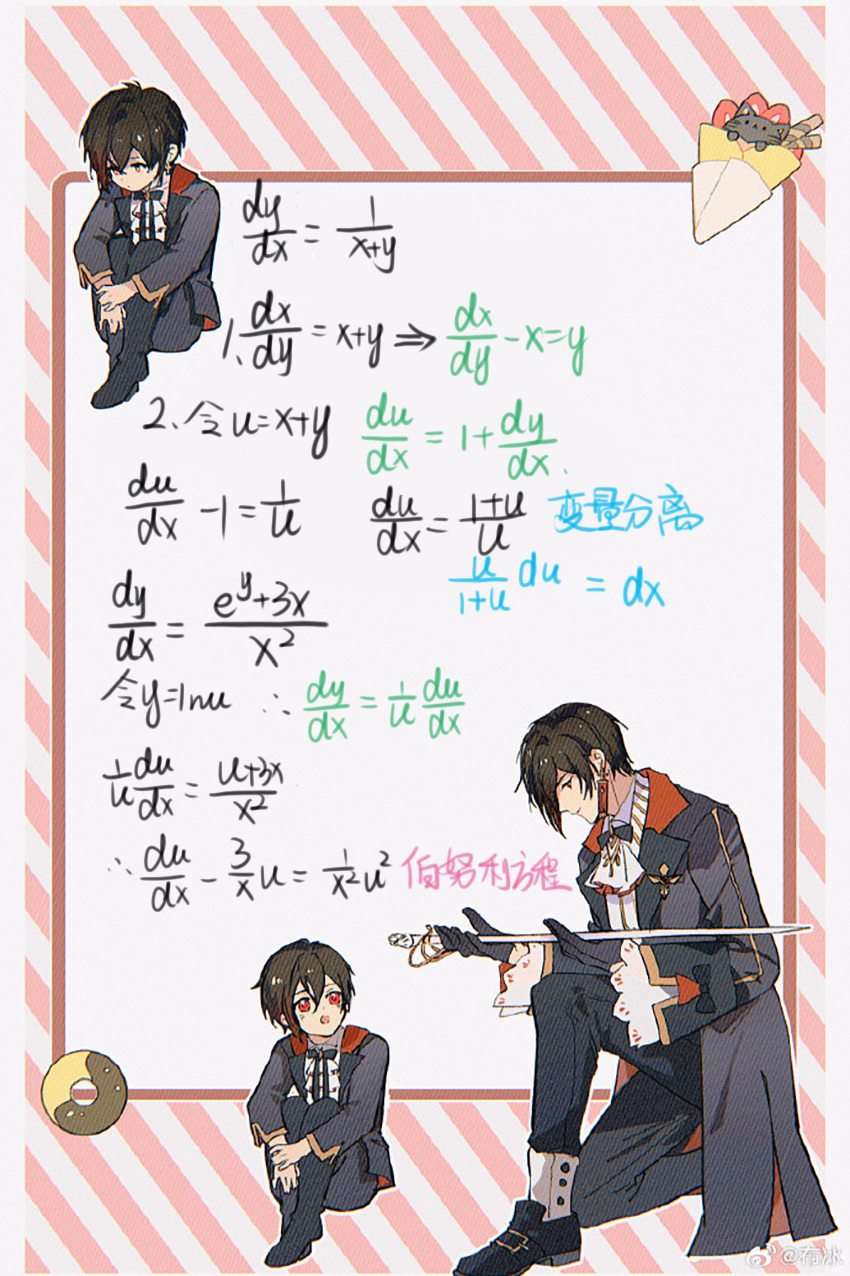 dy/dx = 1/(x+y)
1、dx/dy = x+y ⇒ dx/dy - x = y
2、令u=x+y du/dx = 1 + dy/dx.
du/dx - 1 = 1/u du/dx = (1+u)/u 变量分离
u/(1+u) du = dx
dy/dx = (e^y+3x)/x^2
令y=lnu ∴ dy/dx = 1/u du/dx
1/u du/dx = (u+3x)/x^2
∴ du/dx - 3/x u = 1/x^2 u^2 伯努利方程
@布冰